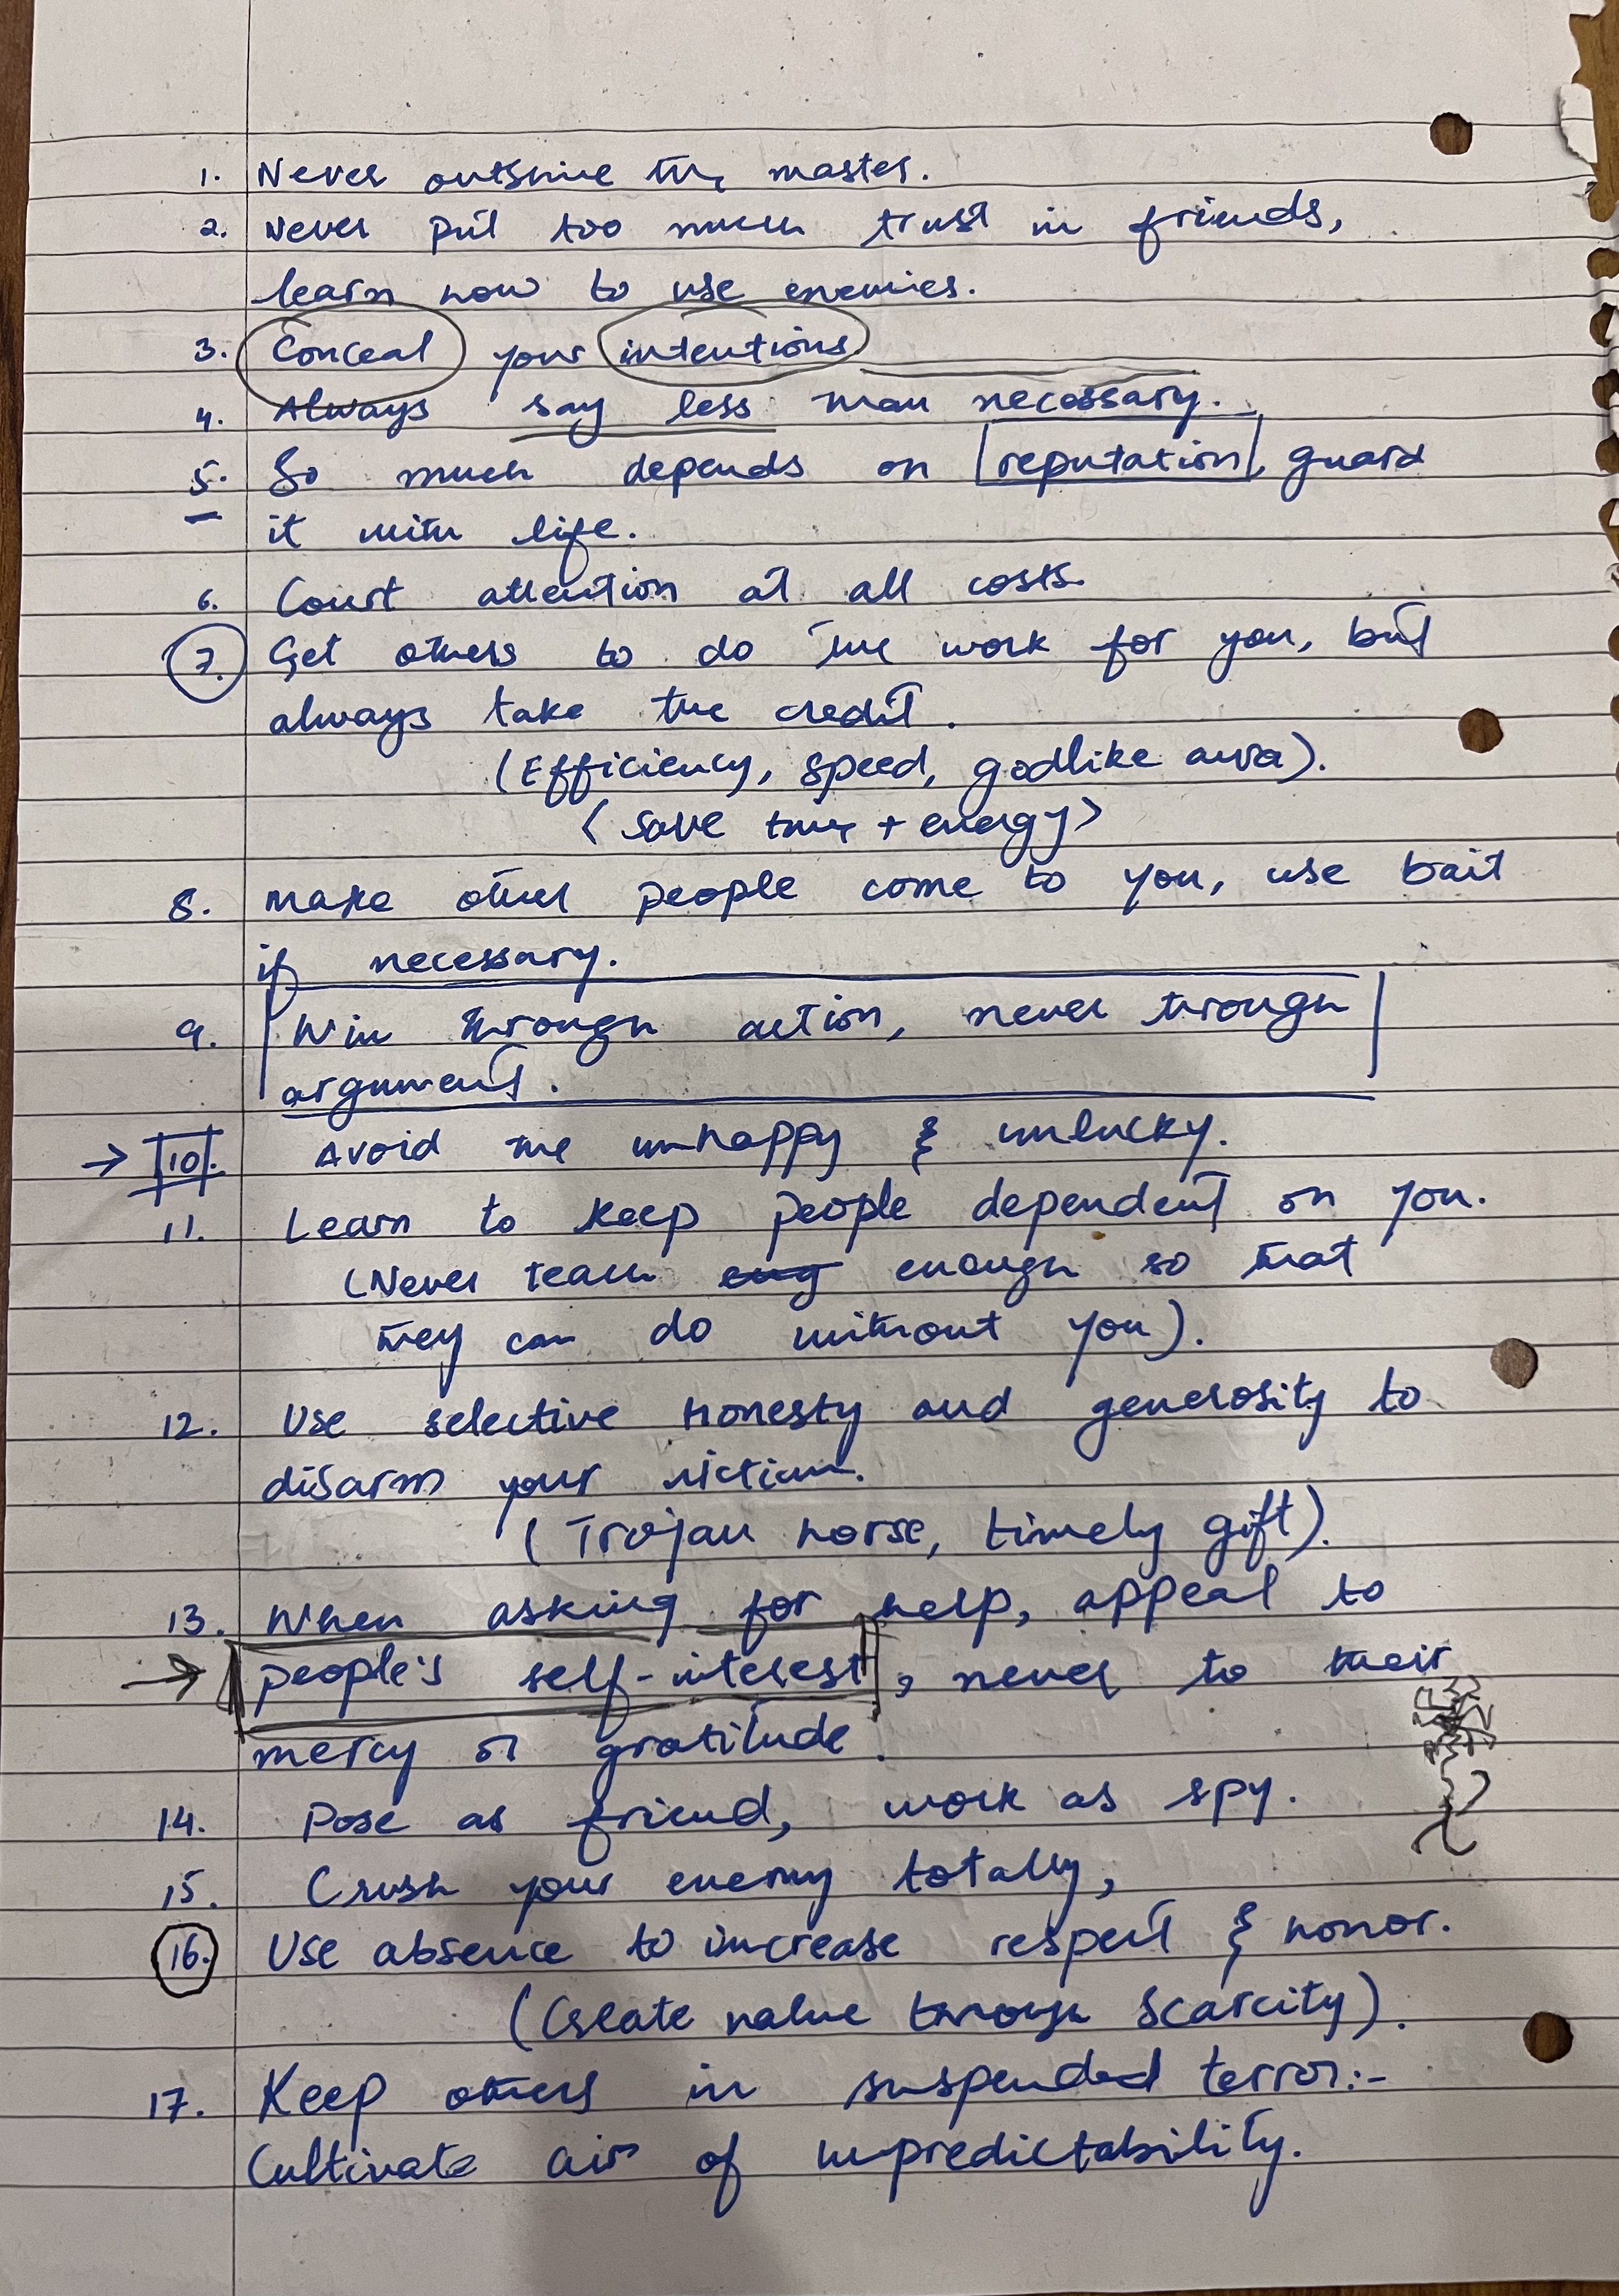 1. Never outshine the master.
2. Never put too much trust in friends,
learn how to use enemies.
3. Conceal your intentions
4. Always say less than necessary.
5. So much depends on reputation, guard
it with life.
6. Court attention at all costs.
7. Get others to do the work for you, but
always take the credit.
(Efficiency, speed, godlike aura).
<save time + energy>
8. Make other people come to you, use bait
if necessary.
9. Win through action, never through
argument.
→ 10. Avoid the unhappy & unlucky.
11. Learn to keep people dependent on you.
(Never teach enough so that
they can do without you).
12. Use selective honesty and generosity to
disarm your victim.
(Trojan horse, timely gift).
13. When asking for help, appeal to
→ people's self-interest, never to their
mercy or gratitude.
14. Pose as friend, work as spy.
15. Crush your enemy totally,
16. Use absence to increase respect & honor.
(Create value through scarcity).
17. Keep others in suspended terror:-
Cultivate air of unpredictability.